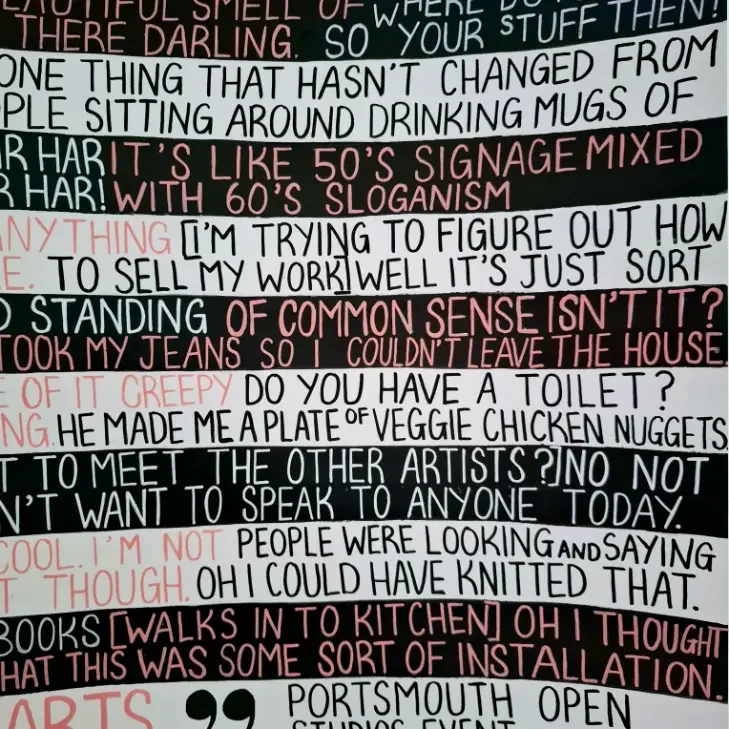 BEAUTIFUL SMELL OF WHERE DO
THERE DARLING. SO YOUR STUFF THEN?
ONE THING THAT HASN'T CHANGED FROM
SITTING AROUND DRINKING MUGS OF
HAR IT'S LIKE 50'S SIGNAGE MIXED
HAR! WITH 60'S SLOGANISM
ANYTHING [I'M TRYING TO FIGURE OUT HOW
TO SELL MY WORK] WELL IT'S JUST SORT
STANDING OF COMMON SENSE ISN'T IT?
TOOK MY JEANS SO I COULDN'T LEAVE THE HOUSE.
OF IT CREEPY DO YOU HAVE A TOILET?
HE MADE ME A PLATE OF VEGGIE CHICKEN NUGGETS
TO MEET THE OTHER ARTISTS?] NO NOT
N'T WANT TO SPEAK TO ANYONE TODAY.
COOL. I'M NOT PEOPLE WERE LOOKING AND SAYING
THOUGH. OH I COULD HAVE KNITTED THAT.
BOOKS [WALKS IN TO KITCHEN] OH I THOUGHT
HAT THIS WAS SOME SORT OF INSTALLATION.
ARTS ❞ PORTSMOUTH OPEN
STUDIOS EVENT